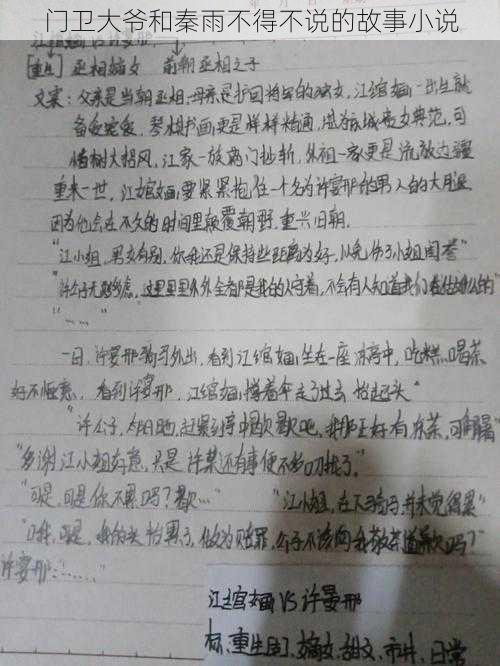 门卫大爷和秦雨不得不说的故事小说
江绾婳 VS 许晏邢
[重生] 丞相嫡女 前朝丞相之子
文案:父亲是当朝丞相,母亲是护国将军的嫡女,江绾婳一出生就
备受宠爱,琴棋书画更是样样精通,堪称京城贵女典范,可
惜树大招风,江家一族满门抄斩,外祖一家更是流放边疆
重来一世,江绾婳要紧紧抱住一个名为许晏邢的男人的大腿
因为他会在不久的时间里颠覆朝野,重兴旧朝.
"江小姐,男女有别,你我还是保持些距离为好,以免伤了小姐闺誉"
"许公子无需多虑,这里里里外外全都是我的人守着,不会有人知道我们在做什么的"
"……"
一日,许晏邢骑马外出,看到江绾婳坐在一座凉亭中,吃糕,喝茶
好不惬意,看到许晏邢,江绾婳撑着伞走了过去,抬起头
"许公子,今日日晒,赶紧到亭中歇歇吧,我那正好有凉茶,可解渴"
"多谢江小姐好意,只是许某还有事便不多叨扰了."
"可是,可是你不累吗?歇…" "江小姐,在下骑马并未觉得累"
"哦,可是,我的头抬累了,做为赔罪,公子不该向我敬茶道歉吗?"
许晏邢……"
江绾婳 VS 许晏邢
标:重生,嫡女,甜文,市井,日常